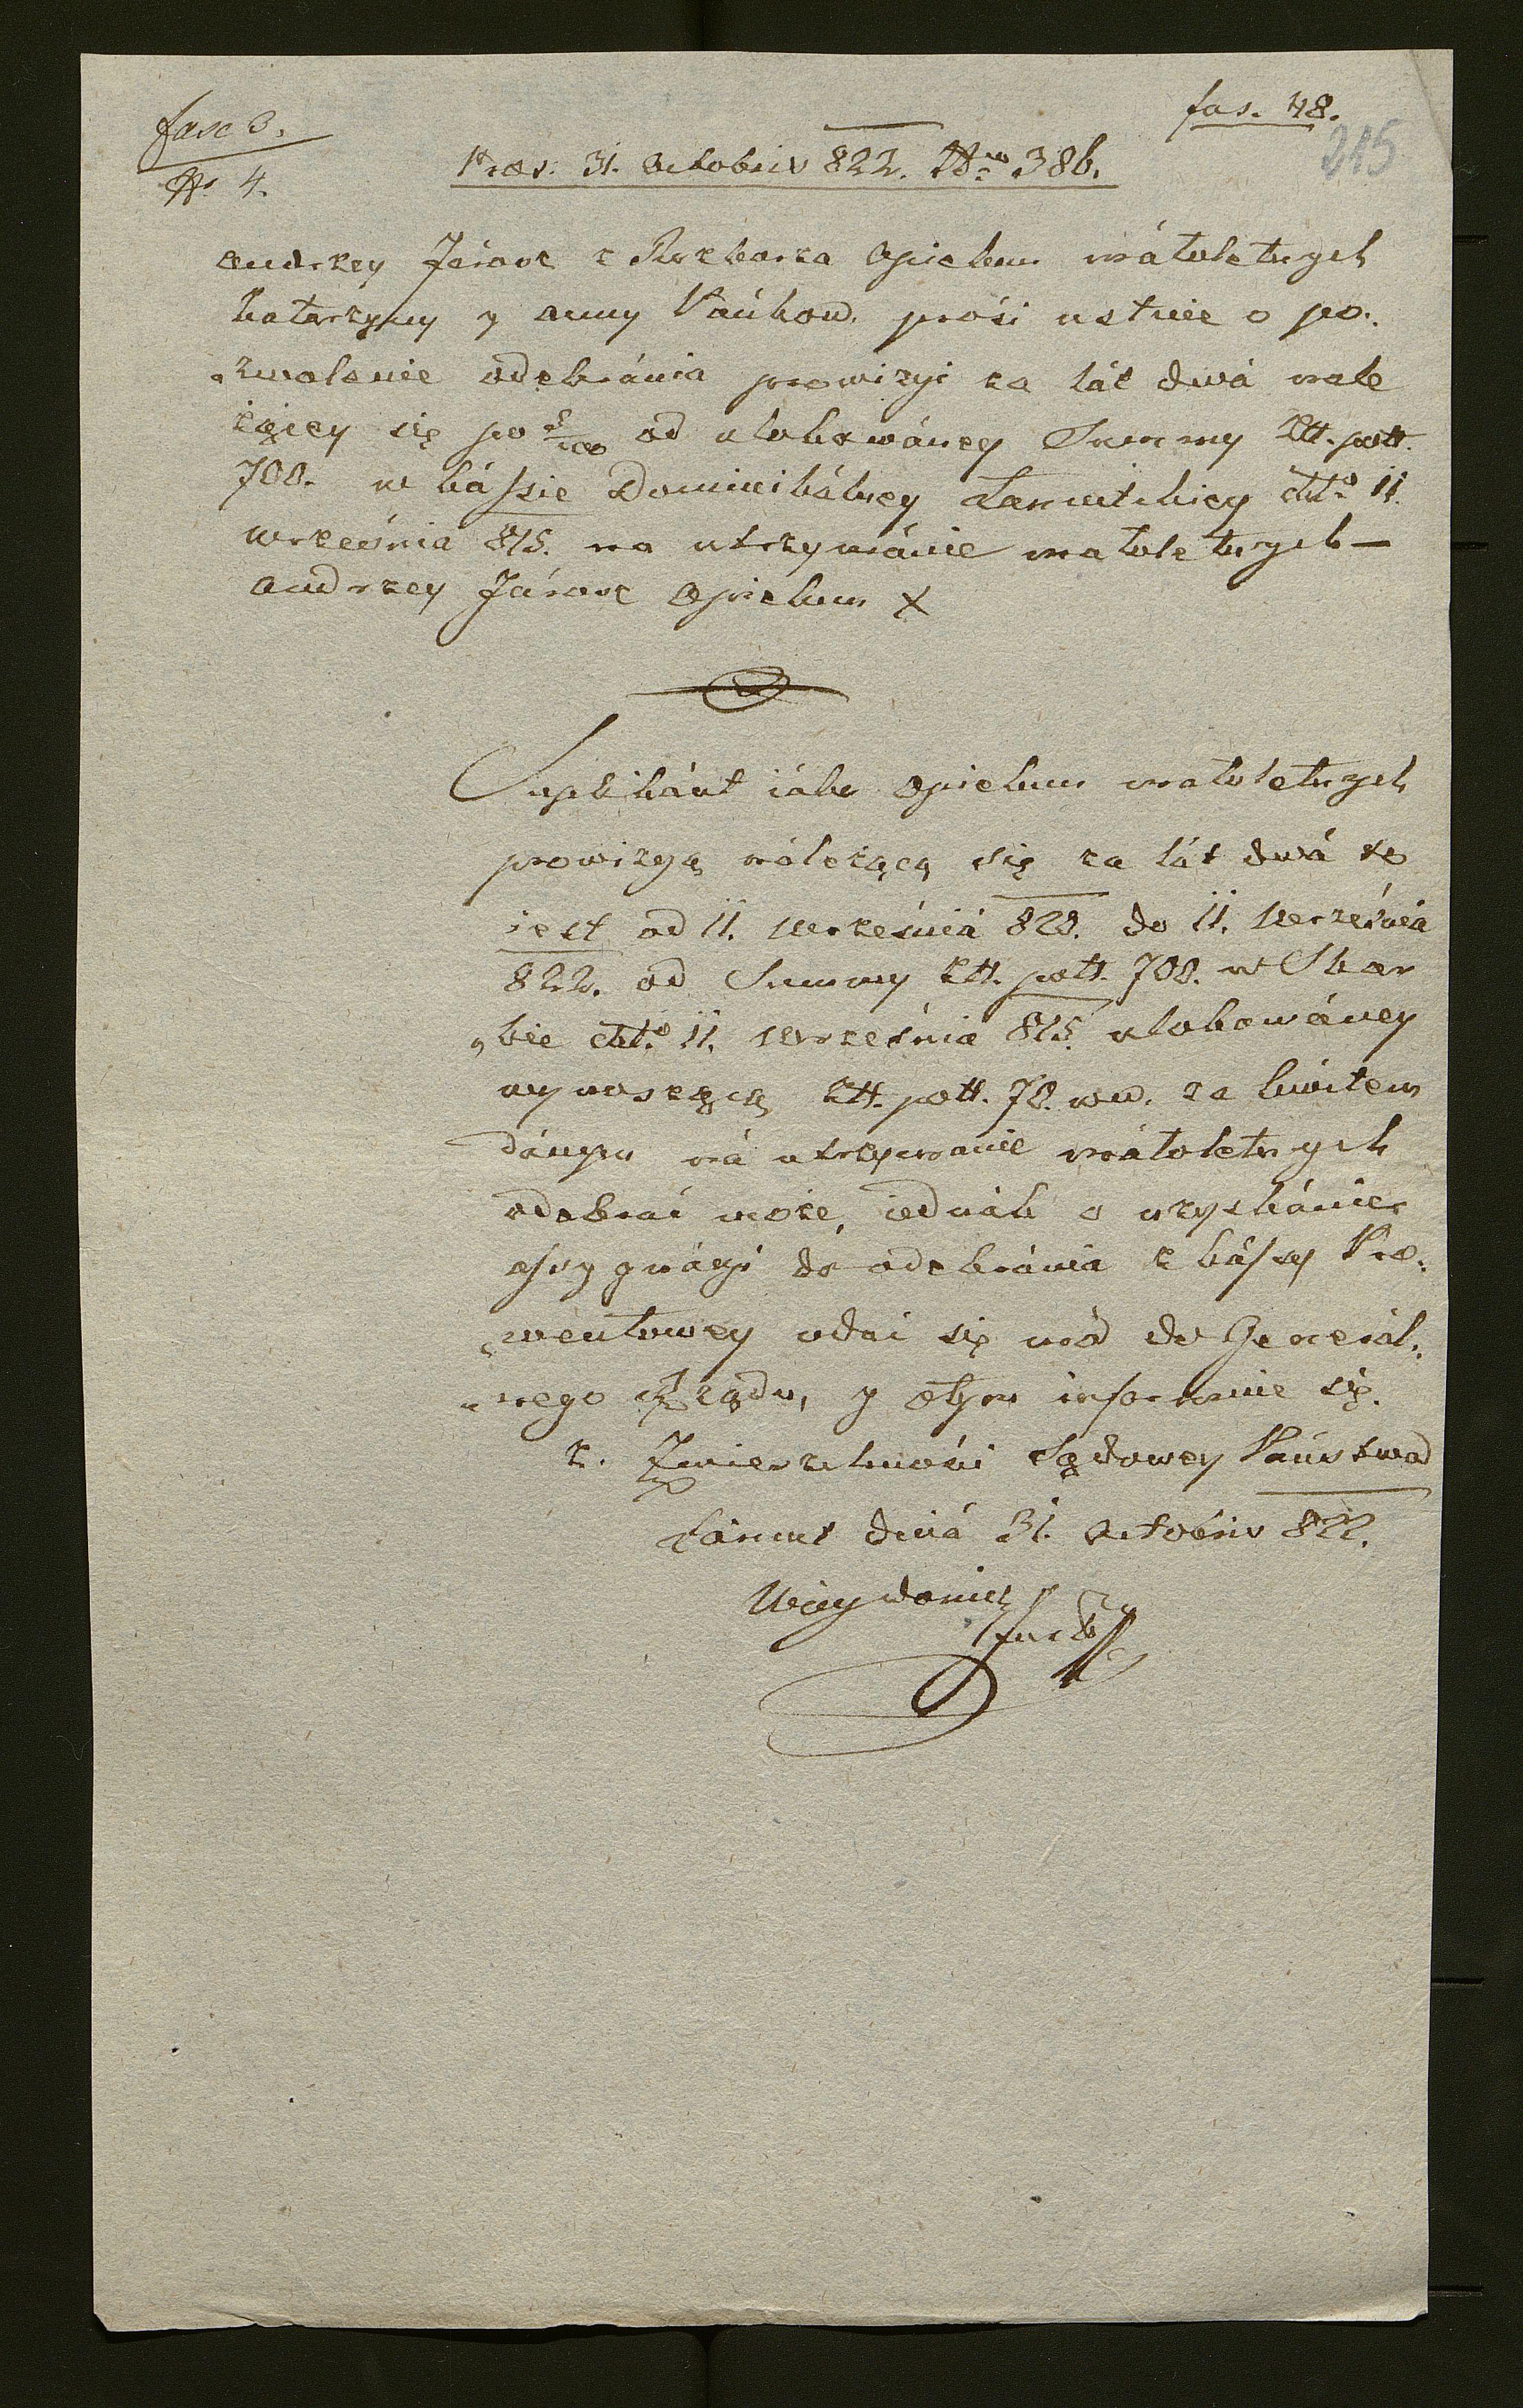 fas. 48.
fasc 3.
215
Nr 4.
Præs: 31. Octobris 822. Nro 386.
Andrzey Jarosz z Opiekun małoletnych
Katarzyny y Anny Pańkow. prosi ustnie o po„
„zwolenie odebránia prowizyi za lát dwá nale
żącey się po 5/100 od ulokowáney Summy Ztt. pott.
700. w kássie Dominikálney Łancutskiey dtto 11.
września 815. na utrzymánie małoletnych —
Andrzey Járosz Opiekun X
Suplikánt iáko Opiekun małoletnych
prowizyą nálezącą się za lát dwá to
iest od 11. Wrześniá 820. do 11. Wrześniá
822. od Summy Ztt. pott. 700. w Skar
„bie dtto 11. Września 815. ulokowáney
wynoszącą Ztt. pott. 70. ww. za kwitem
dánym ná utrzymanie máłoletnych
odebrać może, iednák o uzyskánie
assygnácyi do odebránia z kássy Pro„
„wentowey udać się má do Generál„
„nego Rządu, y otym informuie się.
z. Zwierzchności Sądowey Páństwa
Łáncut dniá 31. Octobris 822.